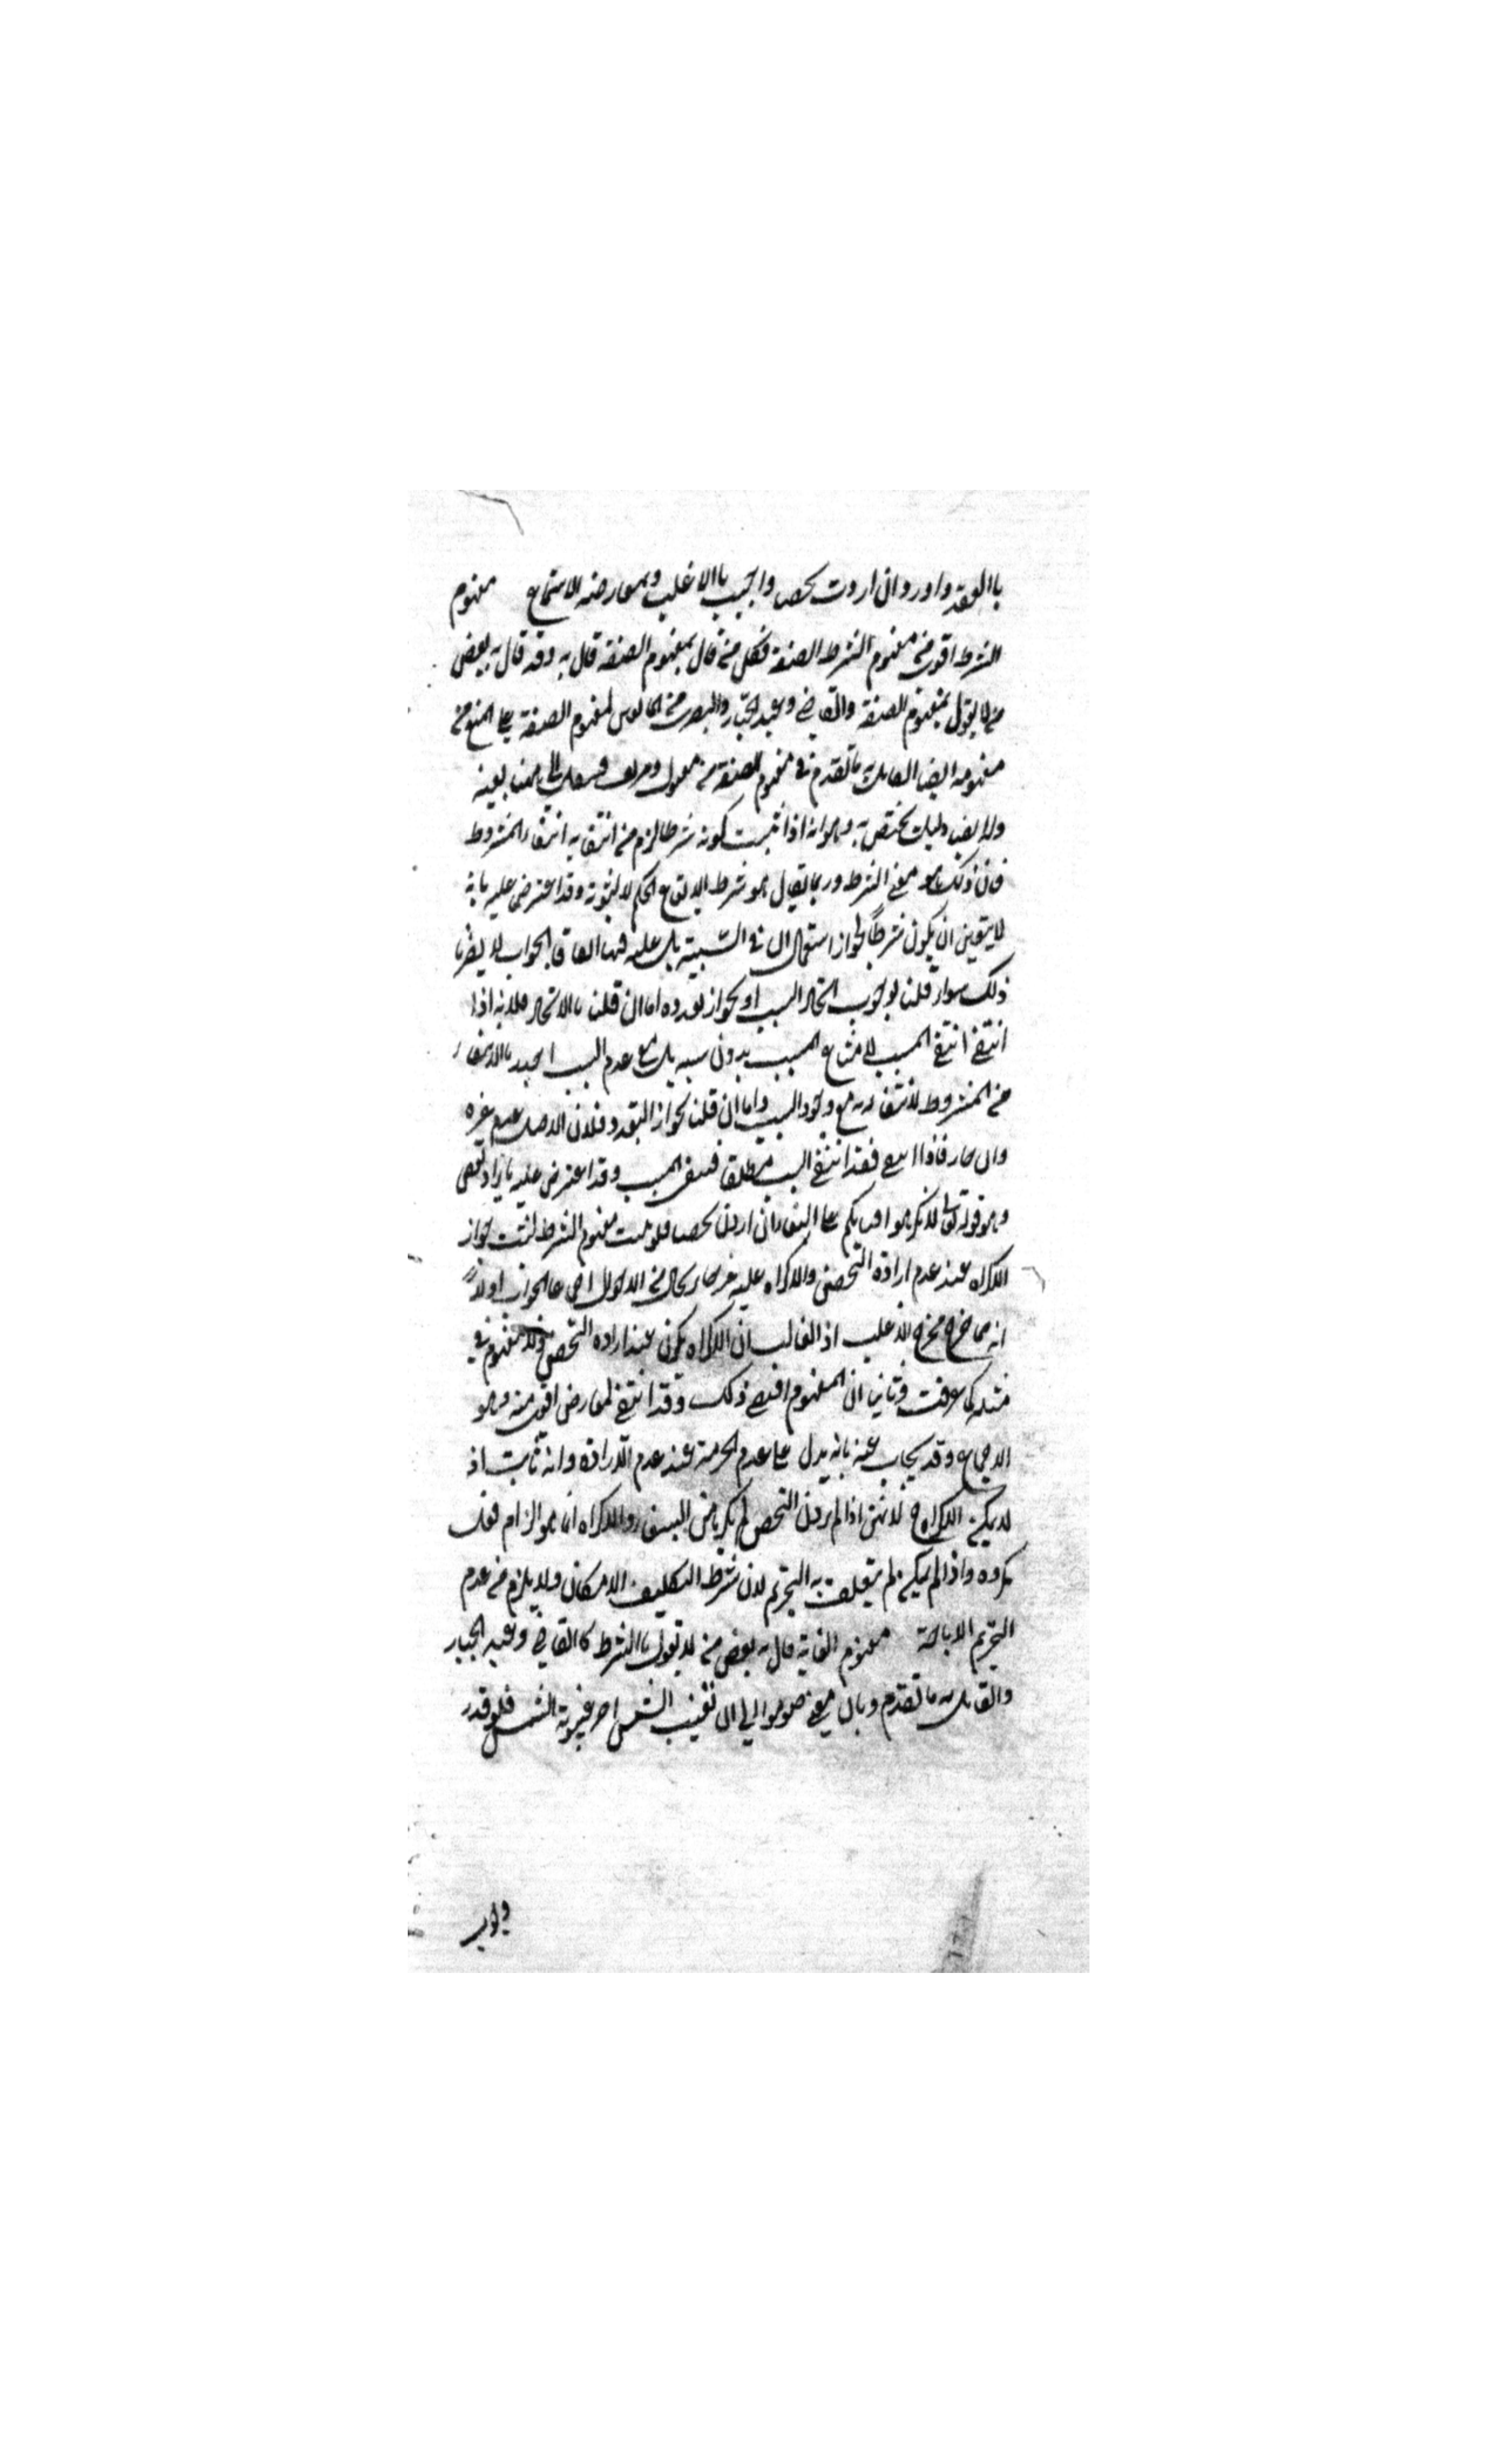 باالعقد واورد ان اردن تحصنا واجيب باالاغلب وبمعارضة الاجماع مفهوم
الشرط اقوى من مفهوم الصفة فكل من قال بمفهوم الصفة قال به وقد قال به بعض
من لا يقول بمفهوم الصفة والقاضي وعبد الجبار والبصري من المانعين لمفهوم الصفة على المنع من
مفهومه ايضا القائل به ما تقدم في مفهوم الصفة من مقبول ومزيف بعينه
وله ايضا دليل يختص به وهو انه اذا ثبت كونه شرطا لزم من انتفايه انتفاء المشروط
فان ذلك هو معنى الشرط وربما يقال هو شرط لايقاع الحكم لا لثبوته وقد اعترض عليه بانه
لا يتعين ان يكون شرطاً لجواز استعمال ان في السببية بل غلبته فيها اتفاقا الجواب لا يضرنا
ذلك سواء قلنا بوجوب اتحاد السبب او بجواز تعدده اما ان قلنا بالاتحاد فلانه اذا
انتفى انتفى المسبب لامتناع المسبب بدون سببه بل مع عدم السبب اجدر بالانتفاء
من المشروط لانتفائه مع وجود السبب واما ان قلنا بجواز التعدد فلان الاصل عدم غيره
وان جاز فاذا انتفى فقد انتفى السبب مطلقا فينتفي المسبب وقد اعترض عليه بايراد نقض
وهو قوله تعالى لا تكرهوا فتياتكم على البغاء ان اردن تحصنا فلو ثبت مفهوم الشرط لثبت جواز
الاكراه عند عدم ارادة التحصن والاكراه عليه غير جائز بحال من الاحوال اجماعا الجواب اولا
انه مما خرج مخرج الاغلب اذ الغالب ان الاكراه يكون عند ارادة التحصن ولا مفهوم في
مثله كما عرفت وثانيا ان المفهوم اقتضى ذلك وقد انتفى لمعارض اقوى منه وهو
الاجماع وقد يجاب عنه بانه يدل على عدم الحرمة عند عدم الارادة وانه ثابت اذ
لا يمكن الاكراه ح لانهن اذا لم يردن التحصن لم يكرهن البغاء والاكراه انما هو الزام فعل
مكروه واذا لم يمكن لم يتعلق به التحريم لان شرط التكليف الامكان ولا يلزم من عدم
التحريم الاباحة مفهوم الغاية قال به بعض من لا يقول باالشرط كاالقاضي وعبد الجبار
والقائل به ما تقدم وبان معنى صوموا الى ان تغيب الشمس اخره غيبوبة الشمس فلو قدر
وجوب